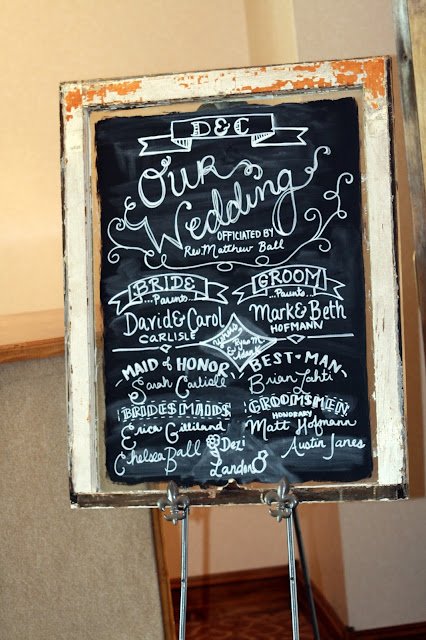 D&C
Our
Wedding
OFFICIATED BY
Rev. Matthew Ball
BRIDE
...Parents...
David & Carol
CARLISLE
GROOM
...Parents...
Mark & Beth
HOFMANN
USHERS
Ryan M.
&
MAID of HONOR
Sarah Carlisle
BEST MAN
Brian Lahti
BRIDESMAIDS
Erica Gilliland
Chelsea Ball
GROOMSMEN
HONORARY
Matt Hofmann
Austin Janes
Dezi
Landon